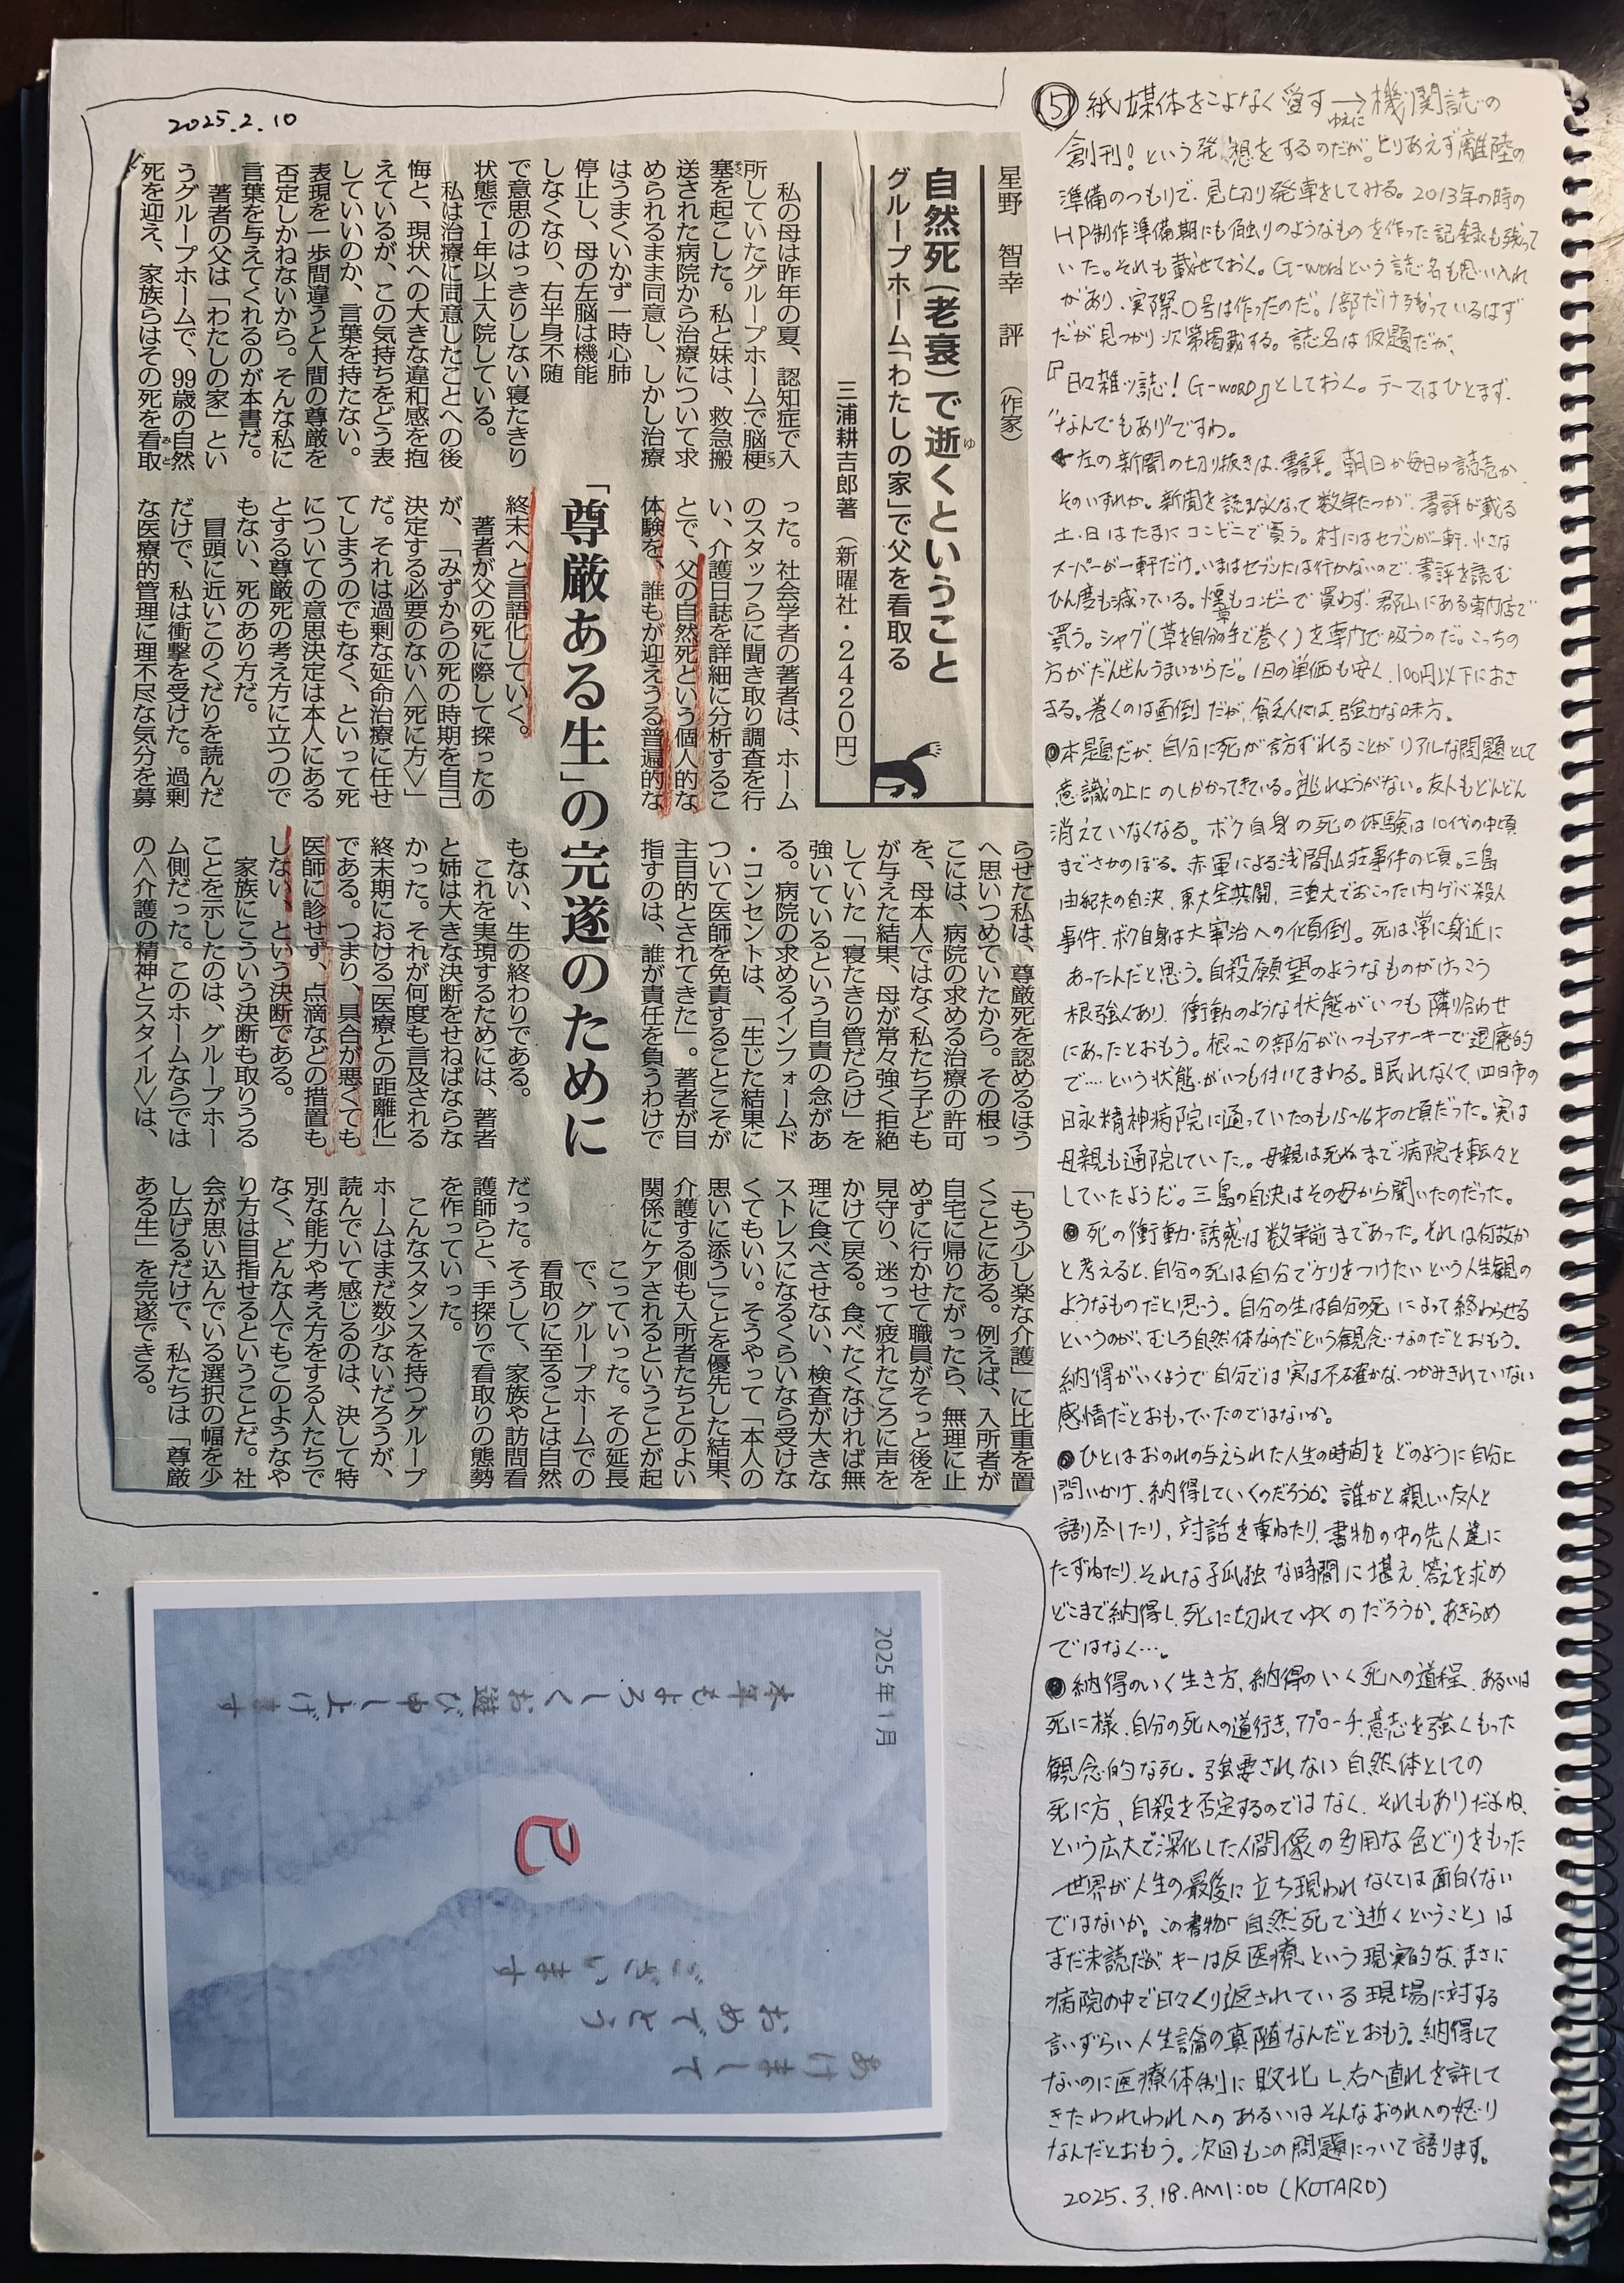 2025.2.10
星野 智幸 評 (作家)
自然死(老衰)で逝くということ
ゆ
グループホーム「わたしの家」で父を看取る
三浦耕吉郎著 (新曜社・2420円)
私の母は昨年の夏、認知症で入
所していたグループホームで脳梗
塞を起こした。私と妹は、救急搬
送された病院から治療について求
められるまま同意し、しかし治療
はうまくいかず一時心肺
停止し、母の左脳は機能
しなくなり、右半身不随
で意思のはっきりしない寝たきり
状態で1年以上入院している。
私は治療に同意したことへの後
悔と、現状への大きな違和感を抱
えているが、この気持ちをどう表
していいのか、言葉を持たない。
表現を一歩間違うと人間の尊厳を
否定しかねないから。そんな私に
言葉を与えてくれるのが本書だ。
著者の父は「わたしの家」とい
うグループホームで、99歳の自然
死を迎え、家族らはその死を看取
った。社会学者の著者は、ホーム
のスタッフらに聞き取り調査を行
い、介護日誌を詳細に分析するこ
とで、父の自然死という個人的な
体験を、誰もが迎えうる普遍的な
「尊厳ある生」の完遂のために
終末へと言語化していく。
著者が父の死に際して探ったの
が、「みずからの死の時期を自己
決定する必要のない〈死に方〉」
だ。それは過剰な延命治療に任せ
てしまうのでもなく、といって死
についての意思決定は本人にある
とする尊厳死の考え方に立つので
もない、死のあり方だ。
冒頭に近いこのくだりを読んだ
だけで、私は衝撃を受けた。過剰
な医療的管理に理不尽な気分を募
らせた私は、尊厳死を認めるほう
へ思いつめていたから。その根っ
こには、病院の求める治療の許可
を、母本人ではなく私たち子ども
が与えた結果、母が常々強く拒絶
していた「寝たきり管だらけ」を
強いているという自責の念があ
る。病院の求めるインフォームド
・コンセントは、「生じた結果に
ついて医師を免責することこそが
主目的とされてきた」。著者が目
指すのは、誰が責任を負うわけで
もない、生の終わりである。
これを実現するためには、著者
と姉は大きな決断をせねばならな
かった。それが何度も言及される
終末期における「医療との距離化」
である。つまり、具合が悪くても
医師に診せず、点滴などの措置も
しない、という決断である。
家族にこういう決断も取りうる
ことを示したのは、グループホー
ム側だった。このホームならでは
の〈介護の精神とスタイル〉は、
「もう少し楽な介護」に比重を置
くことにある。例えば、入所者が
自宅に帰りたがったら、無理に止
めずに行かせて職員がそっと後を
見守り、迷って疲れたころに声を
かけて戻る。食べたくなければ無
理に食べさせない、検査が大きな
ストレスになるくらいなら受けな
くてもいい。そうやって「本人の
思いに添う」ことを優先した結果、
介護する側も入所者たちとのよい
関係にケアされるということが起
こっていった。その延長
で、グループホームでの
看取りに至ることは自然
だった。そうして、家族や訪問看
護師らと、手探りで看取りの態勢
を作っていった。
こんなスタンスを持つグループ
ホームはまだ数少ないだろうが、
読んでいて感じるのは、決して特
別な能力や考え方をする人たちで
なく、どんな人でもこのようなや
り方は目指せるということだ。社
会が思い込んでいる選択の幅を少
し広げるだけで、私たちは「尊厳
ある生」を完遂できる。
⑤ 紙媒体をこよなく愛す→機関誌の
ゆえに
創刊!という発想をするのだが。とりあえず離陸の
準備のつもりで、見切り発車をしてみる。2013年の時の
HP制作準備期にも触りのようなものを作った記録も残って
いた。それも載せておく。G-wordという誌名も思い入れ
があり、実際0号は作ったのだ。1部だけ残っているはず
だが見つかり次第掲載する。誌名は仮題だが、
『日々雑ッ誌!G-WORD』としておく。テーマはひとまず、
"なんでもあり"ですわ。
←左の新聞の切り抜きは、書評。朝日か毎日か読売か
そのいずれか。新聞を読まなくなって数年たつが、書評が載る
土・日はたまにコンビニで買う。村にはセブンが一軒、小さな
スーパーが一軒だけ。いまはセブンには行かないので、書評を読む
ひん度も減っている。煙草もコンビニで買わず、郡山にある専門店で
買う。シャグ(草を自分の手で巻く)を専門で吸うのだ。こっちの
方がだんぜんうまいからだ。1日の単価も安く、100円以下におさ
まる。巻くのは面倒だが、貧乏人には強力な味方。
●本題だが、自分に死が訪ずれることがリアルな問題として
意識の上にのしかかってきている。逃れようがない。友人もどんどん
消えていなくなる。ボク自身の死の体験は10代の中頃
までさかのぼる。赤軍による浅間山荘事件の頃。三島
由紀夫の自決、東大全共闘、三重大でおこった内ゲバ殺人
事件、ボク自身は太宰治への化頁倒。死は常に身近に
あったんだと思う。自殺願望のようなものがけっこう
根強くあり、衝動のような状態がいつも隣り合わせ
にあったとおもう。根っこの部分がいつもアナーキーで退廃的
で…という状態がいつも付いてまわる。眠れなくて、四日市の
日永精神病院に通っていたのも15~16才の頃だった。実は
母親も通院していた。母親は死ぬまで病院を転々と
していたようだ。三島の自決はその母から聞いたのだった。
●死の衝動・誘惑は数年前まであった。それは何故か
と考えると、自分の死は自分でケリをつけたいという人生観の
ようなものだと思う。自分の生は自分の死によって終わらせる
というのが、むしろ自然体なのだという観念なのだとおもう。
納得がいくようで自分では実は不確かな、つかみきれていない
感情だとおもっていたのではないか。
●ひとはおのれの与えられた人生の時間をどのように自分に
問いかけ、納得していくのだろうか。誰かと親しい友人と
語り尽したり、対話を重ねたり、書物の中の先人達に
たずねたり、それな孤独な時間に堪え、答えを求め
どこまで納得し、死に切れてゆくのだろうか。あきらめ
ではなく…。
●納得のいく生き方、納得のいく死への道程、あるいは
死に様、自分の死への道行き、アプローチ、意志を強くもった
観念的な死。強要されない自然体としての
死に方、自殺を否定するのではなく、それもありだよね、
という広大で深化した人間像の多用な色どりをもった
世界が人生の最後に立ち現われなくては面白くない
ではないか。この書物「自然死で逝くということ」は
まだ未読だが、キーは反医療という現実的な、まさに
病院の中で日々くり返されている現場に対する
言いずらい人生論の真随なんだとおもう。納得して
ないのに医療体制に敗北し、右へ直れを許して
きたわれわれへの、あるいはそんなおのれへの怒り
なんだとおもう。次回もこの問題について語ります。
2025.3.18.AM1:00 (KOTARO)
あけまして
おめでとう
ございます
本年もよろしくお遊び申し上げます
2025年1月